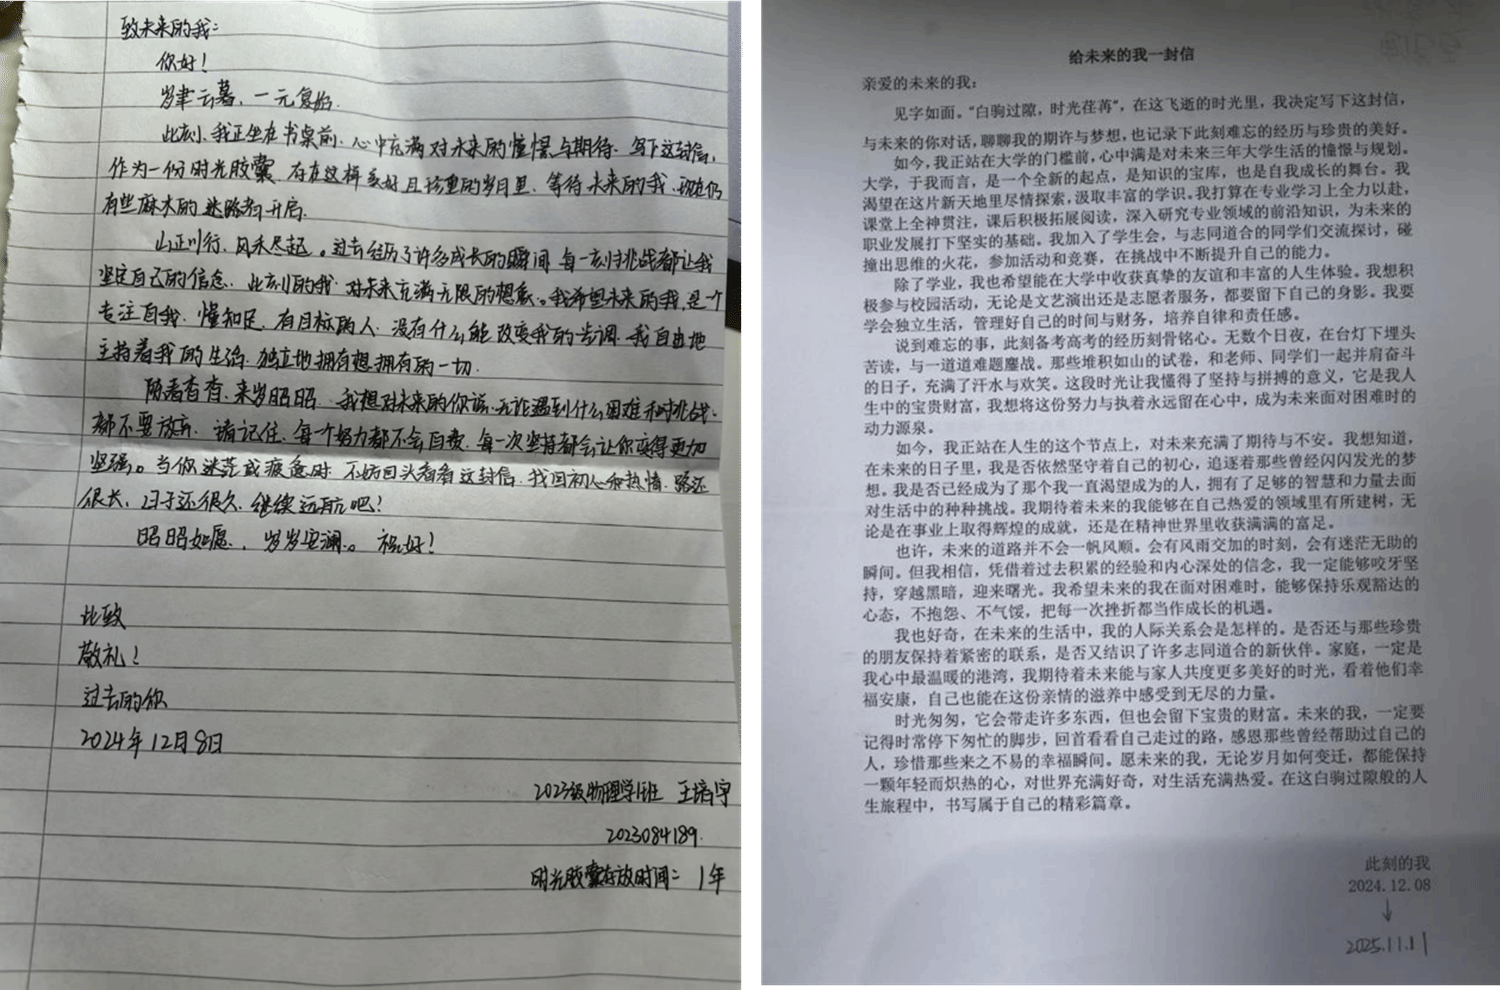 致未来的我：
你好！
岁聿云暮，一元复始.
此刻，我正坐在书桌前，心中充满对未来的憧憬与期待，写下这封信，
作为一份时光胶囊，存在这样美好且珍重的岁月里，等待未来的我，现在仍
有些麻木的迷路者开启.
山止川行，风禾尽起。过去经历了许多成长的瞬间，每一刻挑战都让我
坚定自己的信念，此刻的我，对未来充满无限的想象。我希望未来的我，是一个
专注自我，懂知足，有目标的人，没有什么能改变我的步调，我自由地
主持着我的生活，独立地拥有想拥有的一切.
随着杳杳，来岁昭昭，我想对未来的你说，无论遇到什么困难和挑战，
都不要放弃，请记住，每个努力都不会白费，每一次坚持都会让你变得更加
坚强。当你迷茫或疲惫时，不妨回头看看这封信，找回初心和热情，路还
很长，日子还很久，继续远航吧！
昭昭如愿，岁岁安澜。祝好！
此致
敬礼！
过去的你
2024年12月8日
2023级物理学1班 王培宇
2023084189.
时光胶囊存放时间：1年
给未来的我一封信
亲爱的未来的我：
见字如面。“白驹过隙，时光荏苒”，在这飞逝的时光里，我决定写下这封信，
与未来的你对话，聊聊我的期许与梦想，也记录下此刻难忘的经历与珍贵的美好。
如今，我正站在大学的门槛前，心中满是对未来三年大学生活的憧憬与规划。
大学，于我而言，是一个全新的起点，是知识的宝库，也是自我成长的舞台。我
渴望在这片新天地里尽情探索，汲取丰富的学识。我打算在专业学习上全力以赴，
课堂上全神贯注，课后积极拓展阅读，深入研究专业领域的前沿知识，为未来的
职业发展打下坚实的基础。我加入了学生会，与志同道合的同学们交流探讨，碰
撞出思维的火花，参加活动和竞赛，在挑战中不断提升自己的能力。
除了学业，我也希望能在大学中收获真挚的友谊和丰富的人生体验。我想积
极参与校园活动，无论是文艺演出还是志愿者服务，都要留下自己的身影。我要
学会独立生活，管理好自己的时间与财务，培养自律和责任感。
说到难忘的事，此刻备考高考的经历刻骨铭心。无数个日夜，在台灯下埋头
苦读，与一道道难题鏖战。那些堆积如山的试卷，和老师、同学们一起并肩奋斗
的日子，充满了汗水与欢笑。这段时光让我懂得了坚持与拼搏的意义，它是我人
生中的宝贵财富，我想将这份努力与执着永远留在心中，成为未来面对困难时的
动力源泉。
如今，我正站在人生的这个节点上，对未来充满了期待与不安。我想知道，
在未来的日子里，我是否依然坚守着自己的初心，追逐着那些曾经闪闪发光的梦
想。我是否已经成为了那个我一直渴望成为的人，拥有了足够的智慧和力量去面
对生活中的种种挑战。我期待着未来的我能够在自己热爱的领域里有所建树，无
论是在事业上取得辉煌的成就，还是在精神世界里收获满满的富足。
也许，未来的道路并不会一帆风顺。会有风雨交加的时刻，会有迷茫无助的
瞬间。但我相信，凭借着过去积累的经验和内心深处的信念，我一定能够咬牙坚
持，穿越黑暗，迎来曙光。我希望未来的我在面对困难时，能够保持乐观豁达的
心态，不抱怨、不气馁，把每一次挫折都当作成长的机遇。
我也好奇，在未来的生活中，我的人际关系会是怎样的。是否还与那些珍贵
的朋友保持着紧密的联系，是否又结识了许多志同道合的新伙伴。家庭，一定是
我心中最温暖的港湾，我期待着未来能与家人共度更多美好的时光，看着他们幸
福安康，自己也能在这份亲情的滋养中感受到无尽的力量。
时光匆匆，它会带走许多东西，但也会留下宝贵的财富。未来的我，一定要
记得时常停下匆忙的脚步，回首看看自己走过的路，感恩那些曾经帮助过自己的
人，珍惜那些来之不易的幸福瞬间。愿未来的我，无论岁月如何变迁，都能保持
一颗年轻而炽热的心，对世界充满好奇，对生活充满热爱。在这白驹过隙般的人
生旅程中，书写属于自己的精彩篇章。
此刻的我
2024.12.08
↓
2025.11.11